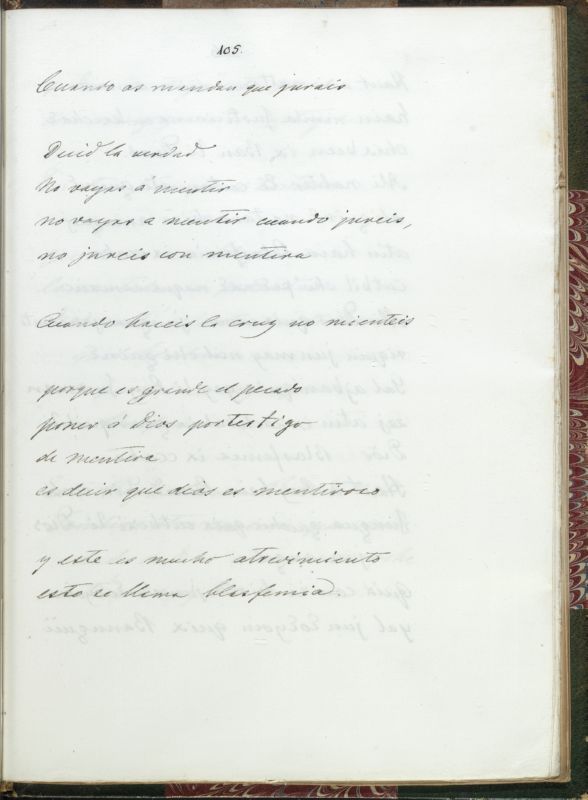 105.
Cuando os mandan que jurais
Decid la verdad
No vayas á mentir
no vayas a mentir cuando jureis,
no jureis con mentira
Cuando haceis la cruz no mienteis
porque es grande el pecado
poner á Dios por testigo
de mentira
es decir que dios es mentiroso
y este es mucho atrevimiento
esto se llama blasfemia.